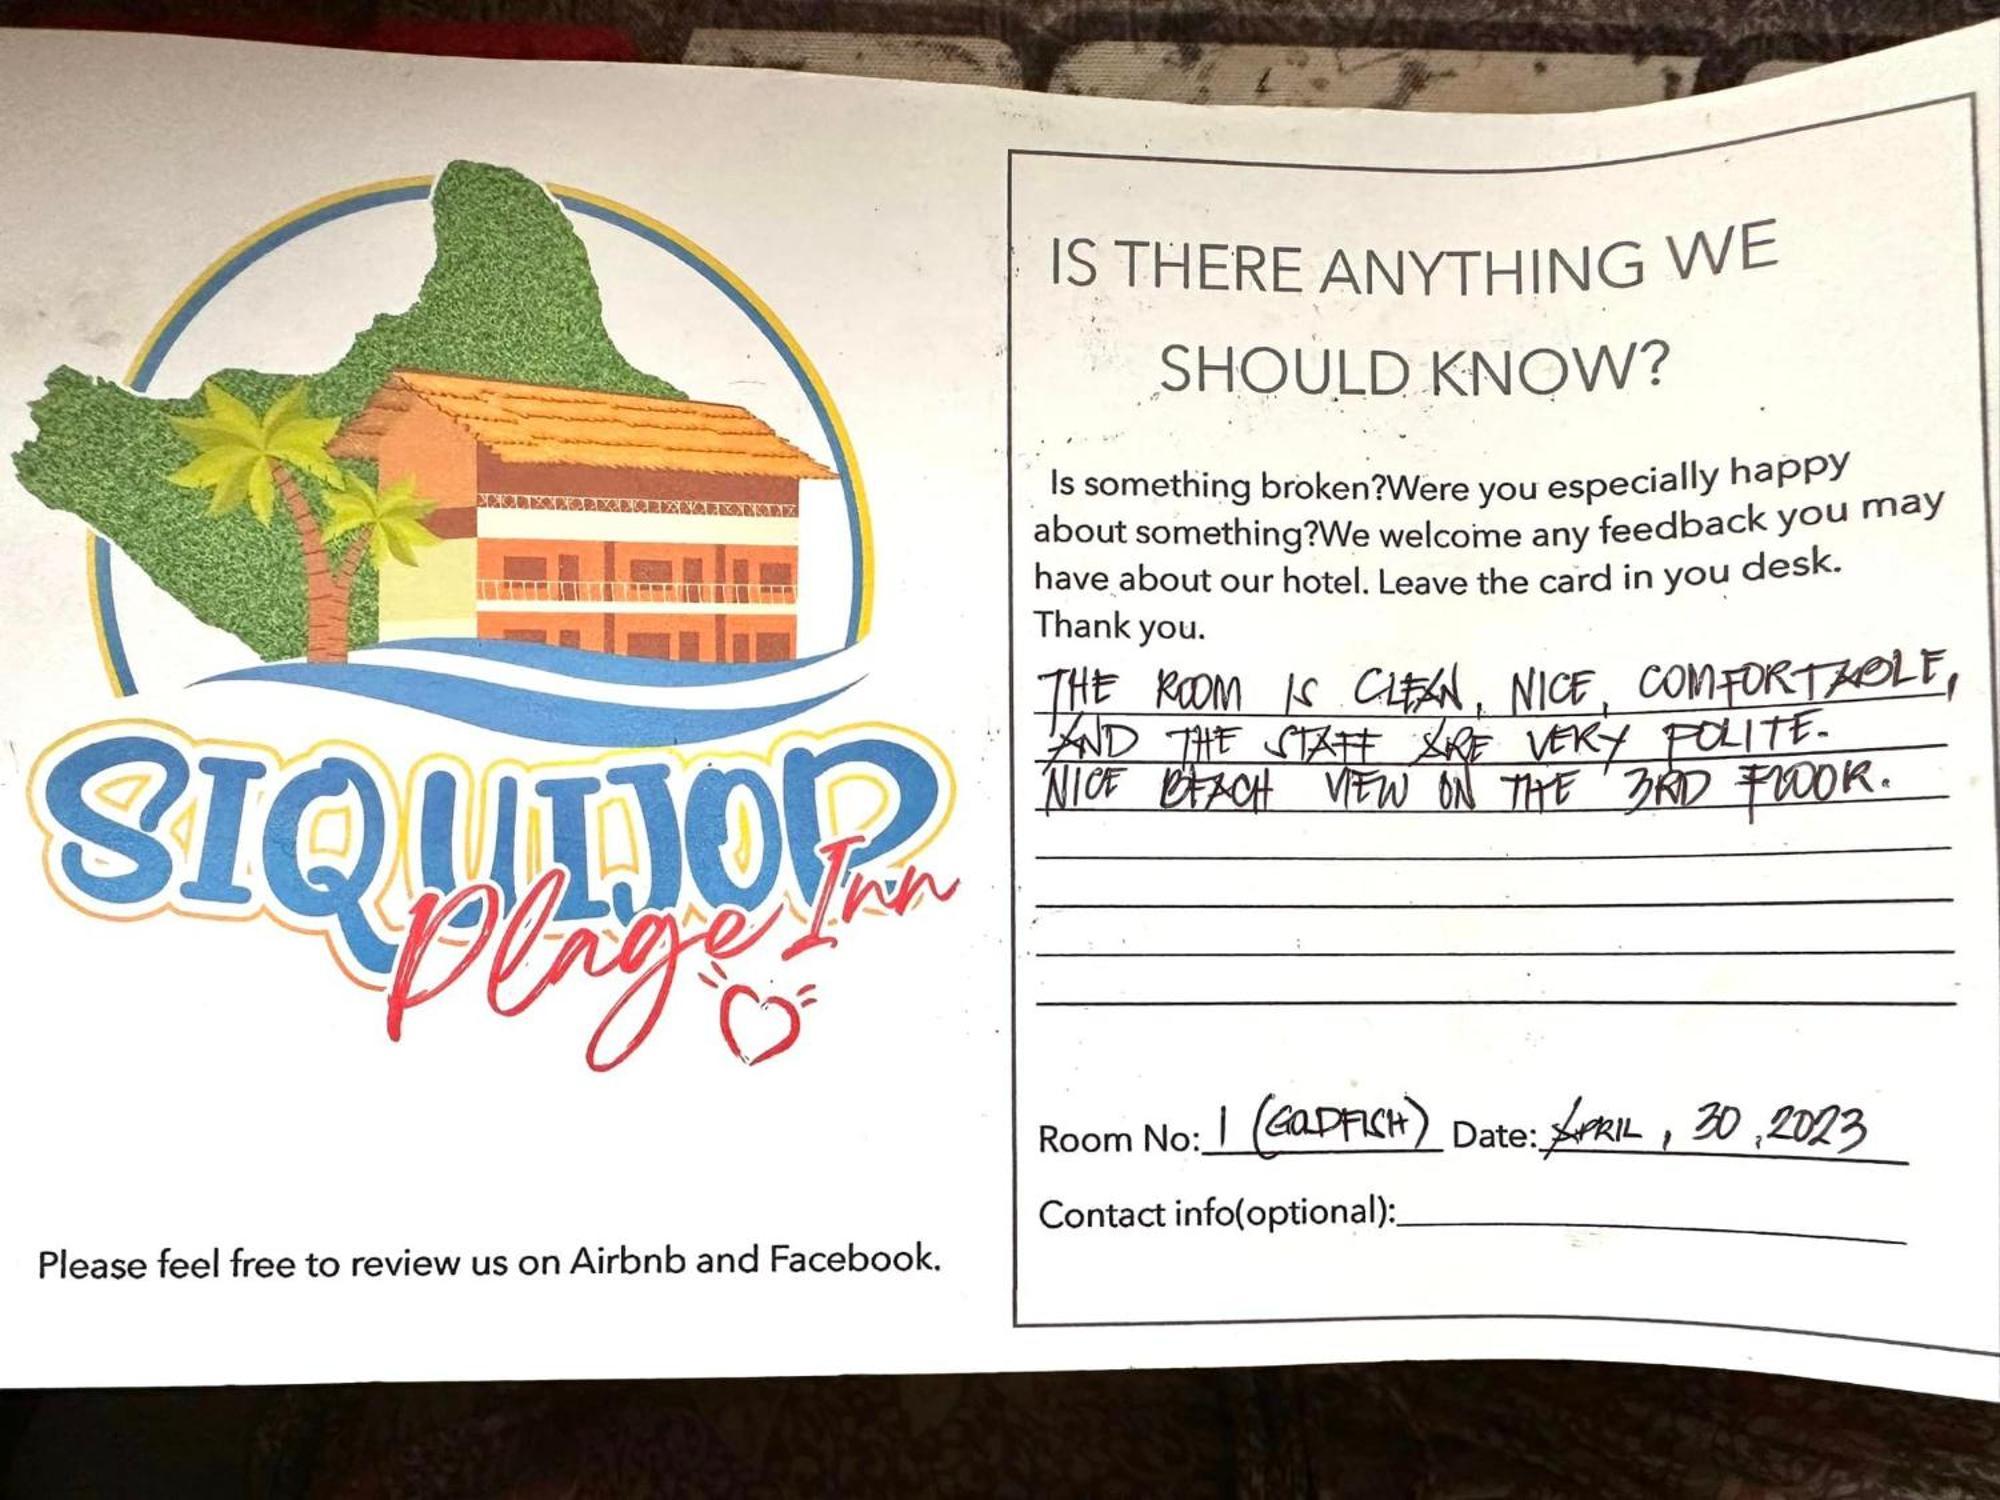 SIQUIJOR
Plage Inn
Please feel free to review us on Airbnb and Facebook.
IS THERE ANYTHING WE
SHOULD KNOW?
Is something broken?Were you especially happy
about something?We welcome any feedback you may
have about our hotel. Leave the card in you desk.
Thank you.
THE ROOM IS CLEAN, NICE, COMFORTABLE,
AND THE STAFF ARE VERY POLITE.
NICE BEACH VIEW ON THE 3RD FLOOR.
Room No: 1 (GOLDFISH) Date: APRIL, 30, 2023
Contact info(optional):